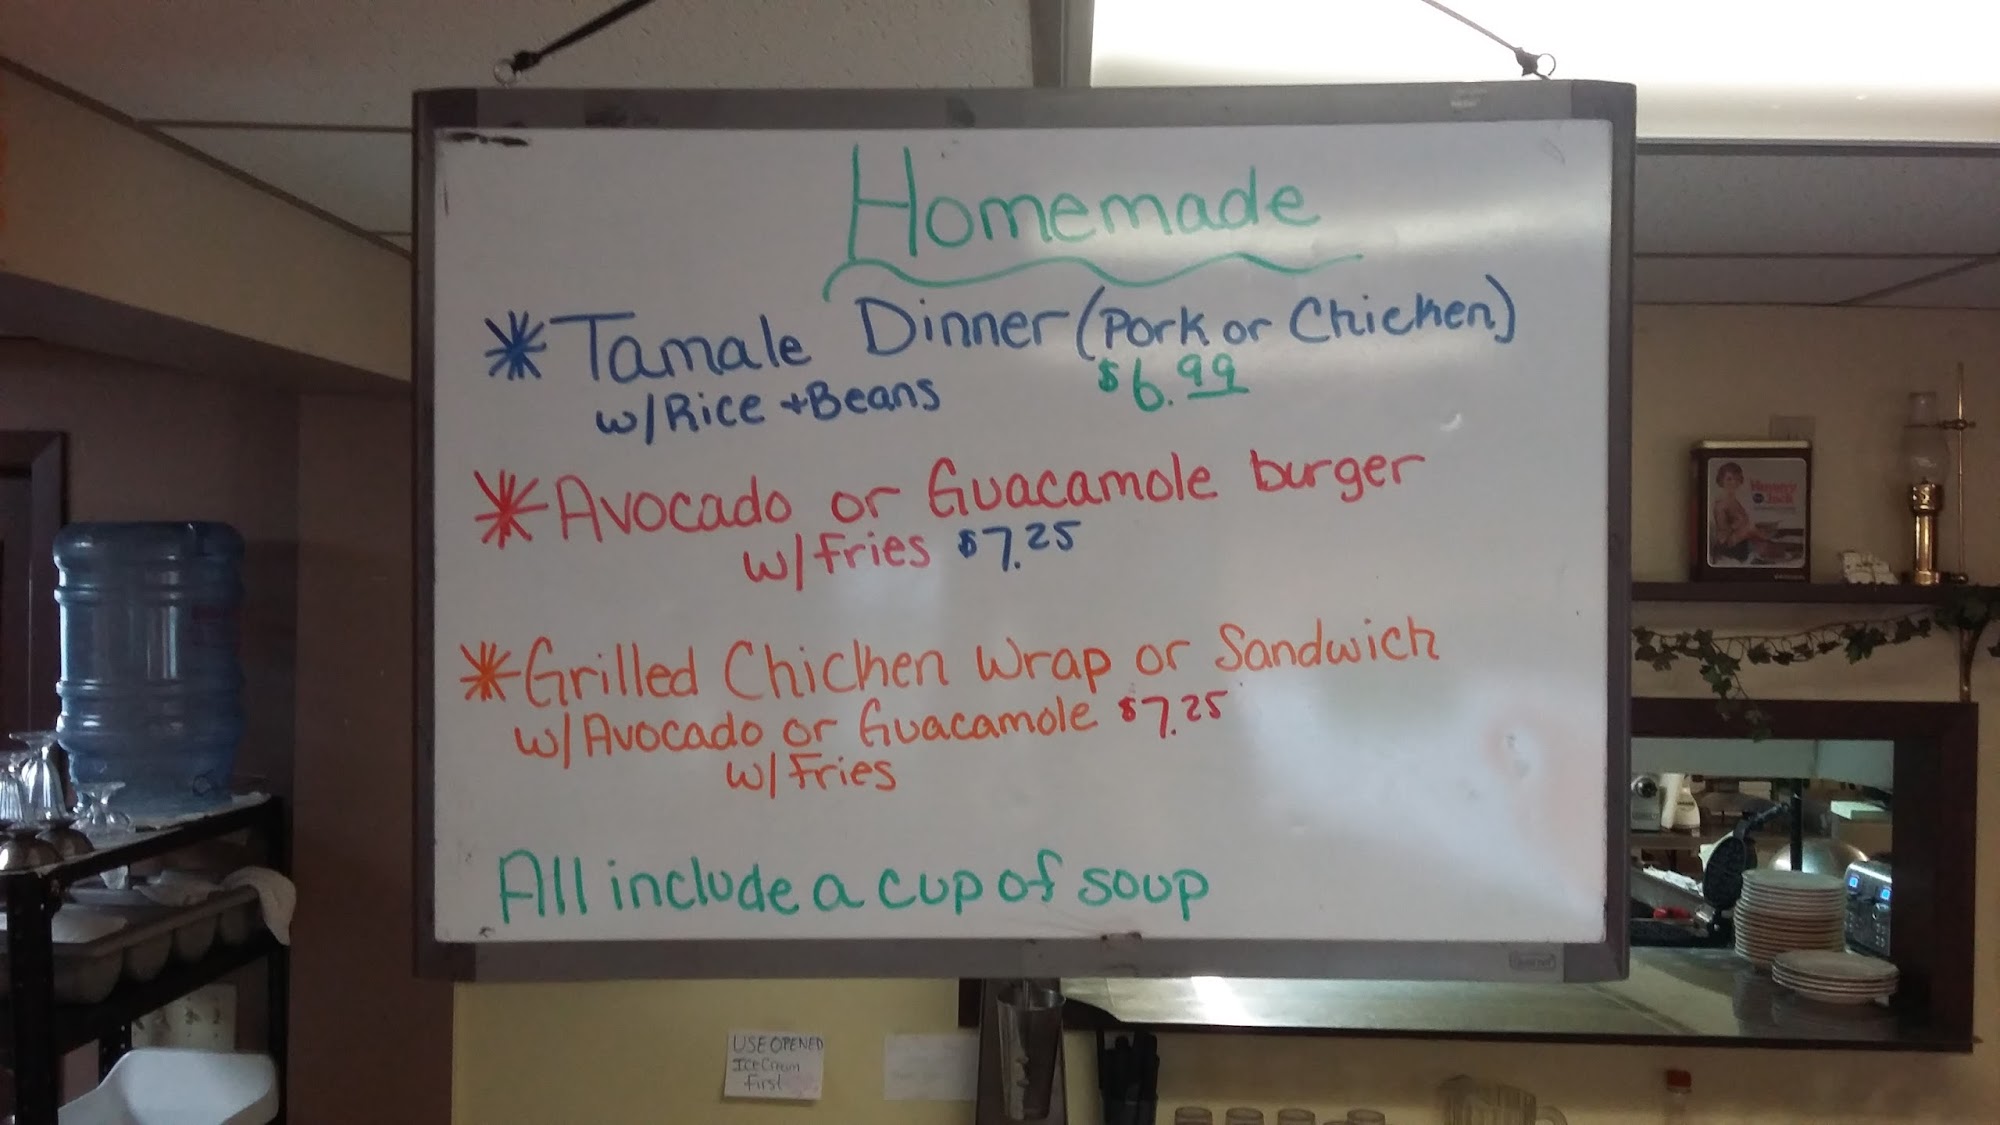 Homemade
* Tamale Dinner (Pork or Chicken)
w/Rice + Beans $6.99
* Avocado or Guacamole burger
w/Fries $7.25
* Grilled Chicken Wrap or Sandwich
w/Avocado or Guacamole $7.25
w/Fries
All include a cup of soup
USE OPENED
Ice Cream
First
Hungry
Jack